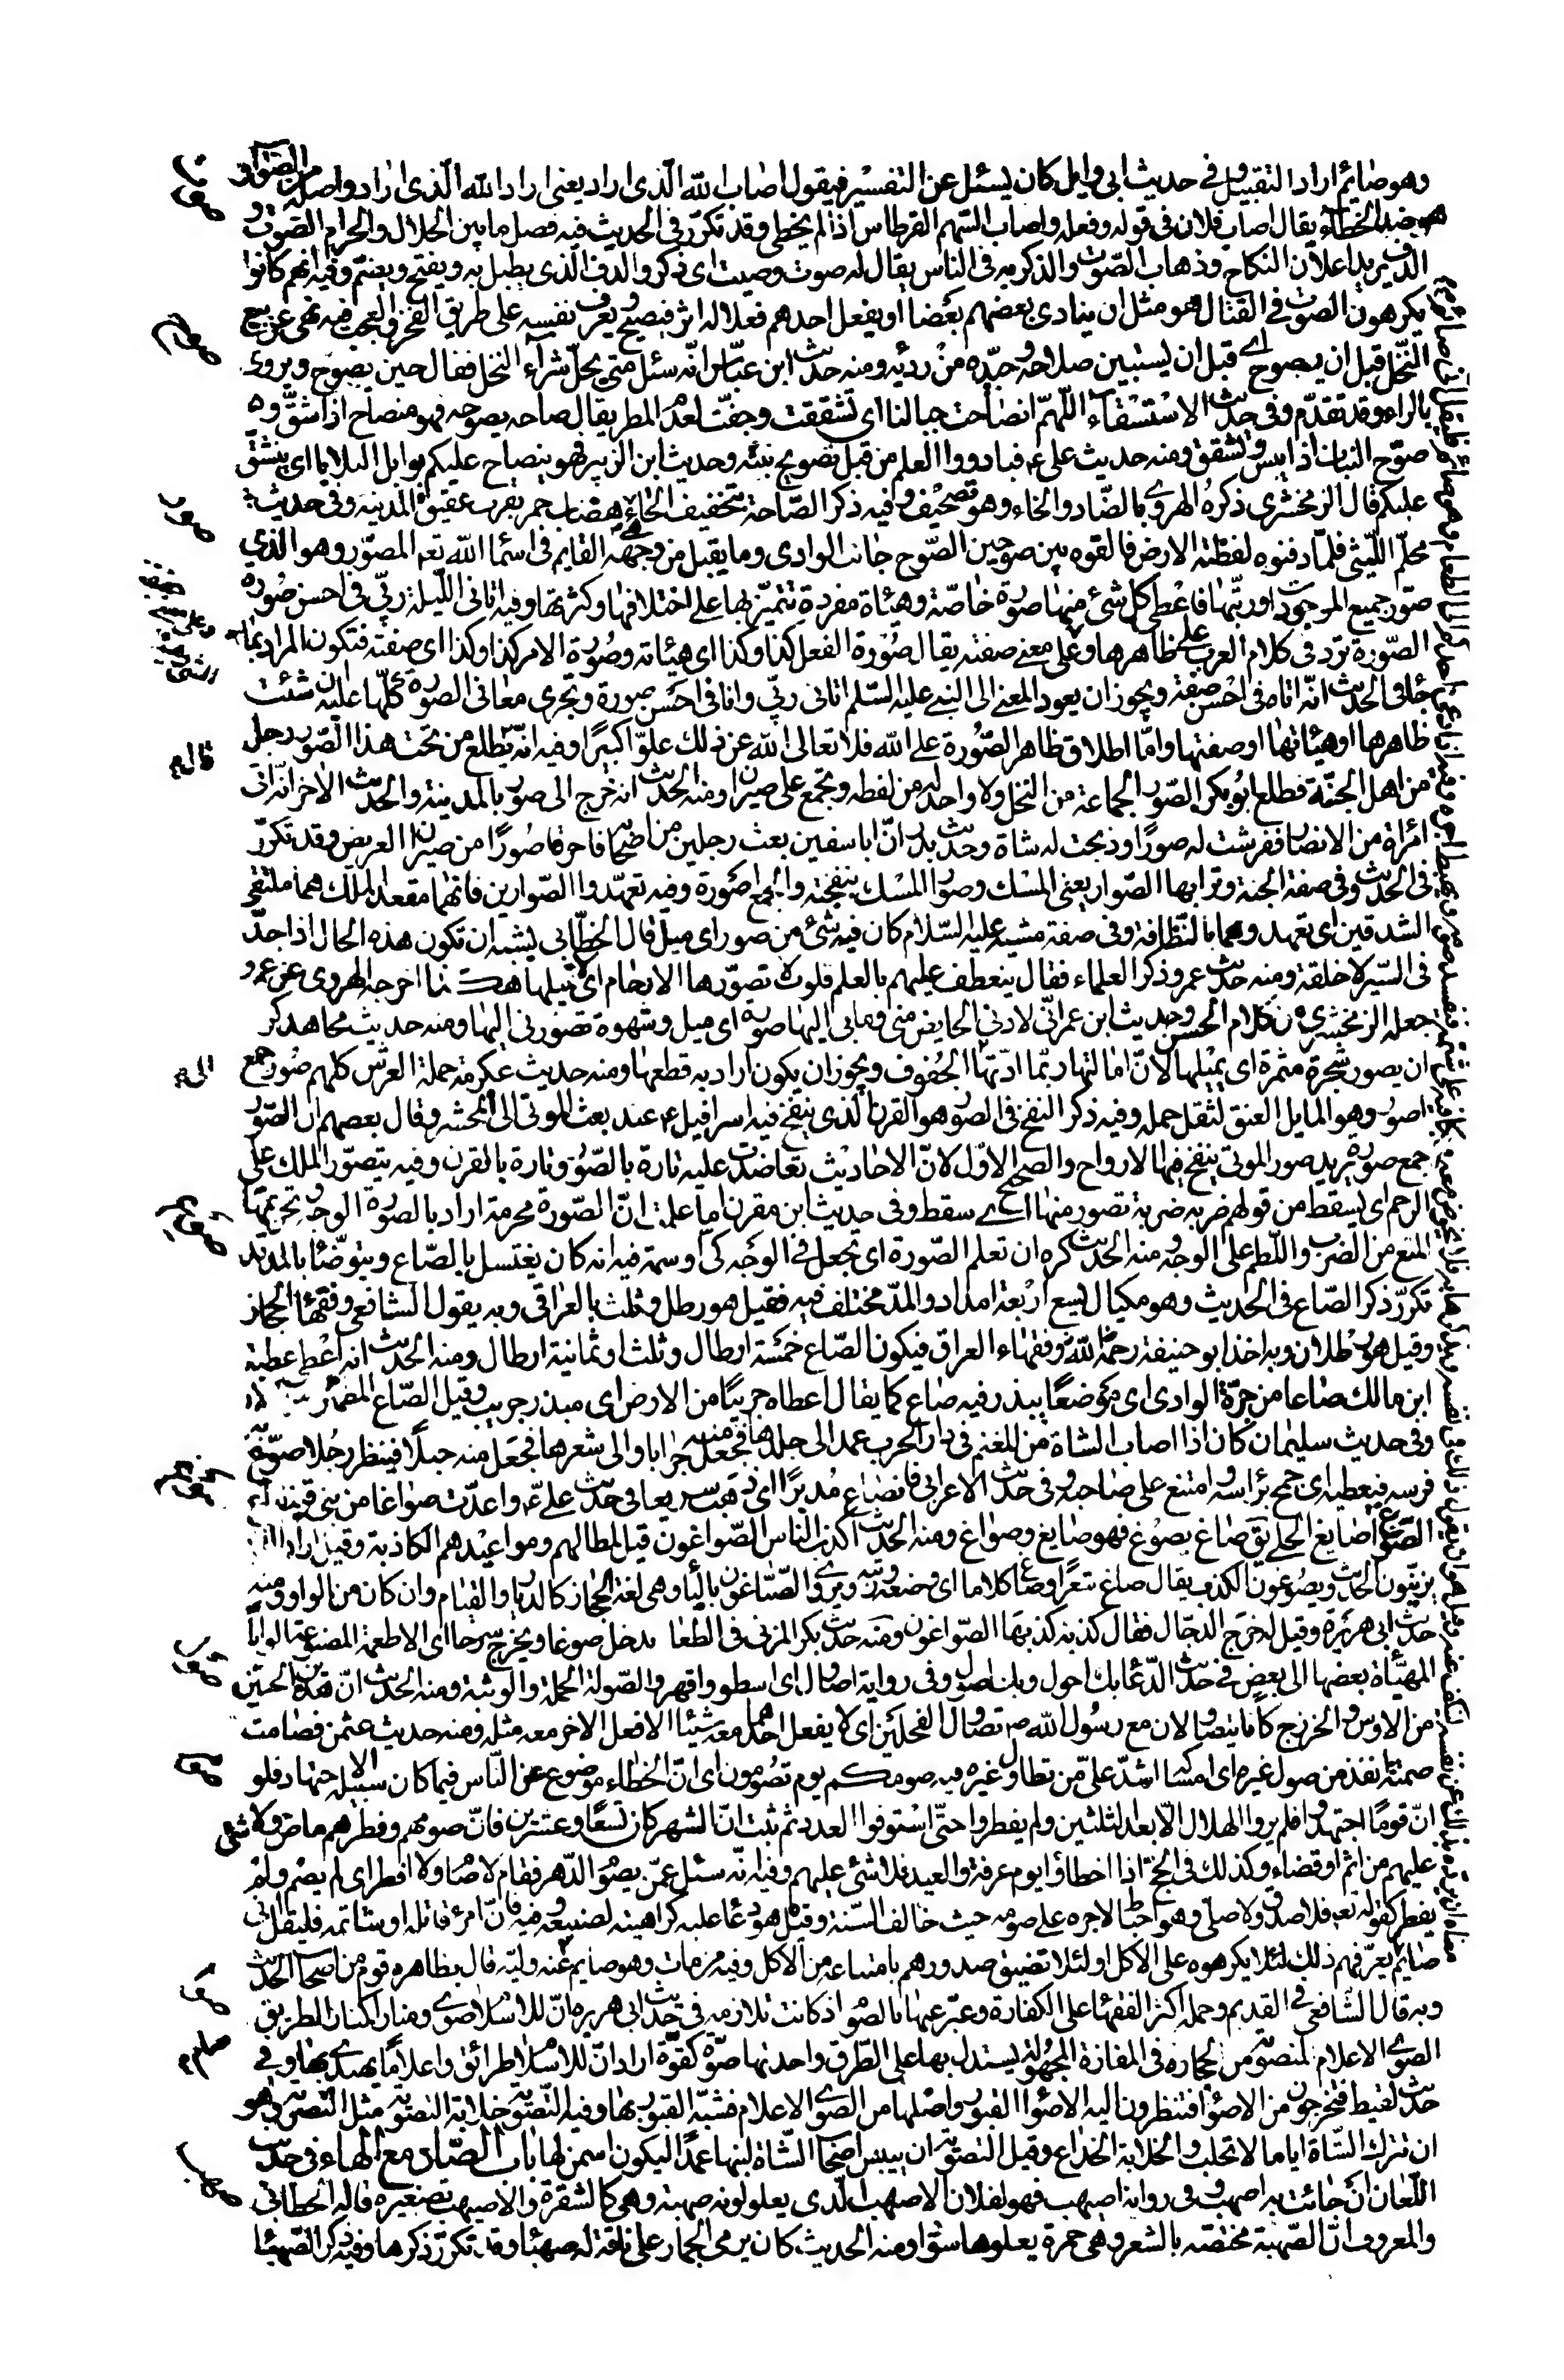 وهو صائم اراد التقبيل وفى حديث ابى وايل كان يسئل عن التفسير فيقول اصاب الله الّذى اراد يعنى اراد الله الّذى اراد واصله من الصّواب
وهو ضد الخطاء يقال اصاب فلان فى قوله وفعله واصاب السّهم القرطاس اذا لم يخطى وقد تكرّر فى الحديث فيه فصل ما بين الحلال والحرام الصّوت و
الدف يريد اعلان النكاح وذهاب الصّوت والذكر به فى الناس يقال له صوت وصيت اى ذكر والدف الذى يطبل به ويفتح ويضمّ وفيه انهم كانوا
يكرهون الصوت فى القتال هو مثل ان ينادى بعضهم بعضا او يفعل احدهم فعلا له اثر فيصيح ويعرف نفسه على طريق الفخر والعجب فيه نهى عن بيع
النّخل قبل ان يصوح اى قبل ان يستبين صلاحه وجيّده من رديّه ومنه حديث ابن عبّاس انّه سئل متى يحلّ شراء النخل فقال حين يصوح ويروى
بالراء وقد تقدّم وفى حديث الاستسقاء اللّهمّ انصاحت جبالنا اى تشققت وجفّت لعدم المطر يقال صاحه يصوحه فهو منصاح اذا شقّه و
صوّح النبات اذا يبس وتشقق ومنه حديث على ع فبادروا العلم من قبل تصويح نبته وحديث ابن الزبير فهو ينصاح عليكم بوابل البلايا اى ينشق
عليكم قال الزمخشرى ذكره الهروى بالضّاد والخاء وهو تصحيف وفيه ذكر الصّاحة بتخفيف الحاء هى هضاب حمر بقرب عقيق المدينه وفى حديث
محلّم اللّيثى فلمّا دفنوه لفظته الارض فالقوه بين صوحين الصّوح جانب الوادى وما يقبل من وجهه القايم فى اسماء الله تعه المصوّر وهو الذى
صوّر جميع الموجودات ورتّبها فاعطى كل شئ منها صورة خاصّة وهيئاة مفردة تتميّز بها على اختلافها وكثرتها وفيه اتانى اللّيلة ربّى فى احسن صُورة
الصّورة ترد فى كلام العرب على ظاهرها وعلى معنى صفته يقال صُورة الفعل كذا وكذا اى هيئاته وصُورة الامر كذا وكذا اى صفته فتكون المراد بما
جاء فى الحديث انّه اتاه فى احسن صفة ويجوز ان يعود المعنى الى النبى عليه السّلم اتانى ربّى وانا فى احسن صورة وتجرى معانى الصورة كلّها عليه ان شئت
ظاهرها او هيئاتها او صفتها وامّا اطلاق ظاهر الصّورة على الله فلا تعالى الله عن ذلك علوّا كبيرًا وفيه انّه يطلع من تحت هذا الصّور رجل
من اهل الجنّة فطلع ابو بكر الصّور الجماعة من النخل ولا واحد له من لفظه ويجمع على صيران ومنه الحديث انه خرج الى صور بالمدينة والحديث الاخر انّه اتى
امراة من الانصار ففرشت له صورًا وذبحت له شاة وحديث بدر انّ ابا سفين بعث رجلين من اصحابه فاحرقا صُورًا من صيران العريض وقد تكرّر
فى الحديث وفى صفة الجنة وترابها الصّوار يعنى المسك وصوار المسك نفجته والجمع اصورة وفيه تعهّدوا الصّوارين فانهما مقعد الملك هما ملتقى
الشدقين اى تعهدوهما بالنّظافة وفى صفة مشيه عليه السّلام كان فيه شئ من صور اى ميل قال الخطّابى يشبه ان تكون هذه الحال اذا جدّ
فى السّير لا خلقة ومنه حديث عمر وذكر العلماء فقال ينعطف عليهم بالعلم قلوب لا تصوّرها الارحام اى لا تميلها هكذا اخرجه الهروى عن عمر و
جعله الزمخشرى من كلام الحسن وحديث ابن عمر انّى لادنى الحايض منى وما بى اليها صورة اى ميل وشهوة تصورنى اليها ومنه حديث مجاهد كره
ان يصور شجرة مثمرة اى يميلها لانّ امالتها ربّما ادّتها الجُفوف ويجوز ان يكون اراد به قطعها ومنه حديث عكرمة حملة العرش كلهم صُور جمع
اصور وهو المايل العنق لثقل حمله وفيه ذكر النفخ فى الصور هو القرن الّذى ينفخ فيه اسرافيل ع عند بعث الموتى الى المحشر وقال بعضهم ان الصّور
جمع صورة يريد صور الموتى ينفخ فيها الارواح والصحيح الاوّل لانّ الاحاديث تعاضدت عليه تارة بالصّور وتارة بالقرن وفيه يتصوّر الملك على
الرحم اى يسقط من قولهم ضربه ضربة تصور منها اى سقط وفى حديث ابن مقرن اما علمت انّ الصّورة محرمة اراد بالصّورة الوجه وتحريمها
المنع من الضرب واللّطم على الوجه ومنه الحديث كره ان تعلم الصّورة اى يجعل فى الوجه كى او سمة فيه انه كان يغتسل بالصّاع ويتوضّئا بالمدّ قد
تكرّر ذكر الصّاع فى الحديث وهو مكيال يسع اربعة امداد والمدّ مختلف فيه فقيل هو رطل وثلث بالعراقى وبه يقول الشافعى وفقهاء الحجاز
وقيل هو رطلان وبه اخذ ابو حنيفة رحمه الله وفقهاء العراق فيكون الصّاع خمسة ارطال وثلث او ثمانية ارطال ومنه الحديث انه اعطى عطية
ابن مالك صاعا من حرّة الوادى اى موضعًا يبذر فيه صاع كما يقال اعطاه جريبًا من الارض اى مبذر جريب وقيل الصّاع المطمئن
وفى حديث سليمان كان اذا اصاب الشاة من المغنم فى دار الحرب عمد الى جلدها فجعل منه جرابا والى شعرها فجعل منه حبلًا فينظر رجُلا صوّع به
فرسه فيعطيه اى جمح براسه وامتنع على صاحبه وفى حديث الاعرابى فانصاع مُدبرًا اى ذهب سريعا فى حديث على ع واعدّت صواغا من بنى قينقاع
الصّوّاغ صايغ الحلى يق صاغ يصوغ فهو صايغ وصواغ ومنه الحديث اكذب الناس الصّواغون قيل لمطالهم ومواعيدهم الكاذبة وقيل اراد الذين
يزيّنون الحديث ويصوغون الكذب يقال صاغ شعرًا وصاغ كلاما اى وضعه ورتّبه ويروى الصّيّاغون بالياء وهى لغة الحجاز كالديّار والقيّام وان كان من الواو ومنه
حديث ابى هريرة وقيل له خرج الدجّال فقال كذبة كذبها الصّواغون ومنه حديث بكر المزنى فى الطعام يدخل صوغا ويخرج سرحا اى الاطعمة المصنوعة الوانا
المهيّاة بعضها الى بعض فى حديث الدّعا بك احول وبك اصول وفى رواية اصاول اى اسطو واقهر والصّولة الحملة والوثبة ومنه الحديث انّ هذين الحيّين
من الاوس والخزرج كانا يتصاولان مع رسول الله ص تصاول الفحلين اى لا يفعل احدهما معه شيئا الا فعل الاخر معه مثله ومنه حديث عثمن فصامت
صمته انفذ من صول غيره اى امساكه اشدّ علىّ من تطاول غيره فيه صومكم يوم تصُومون اى انّ الخطاء موضوع عن النّاس فيما كان سبيله الاجتهاد فلو
انّ قومًا اجتهدوا فلم يروا الهلال الّا بعد الثلثين ولم يفطروا حتّى استوفوا العدد ثم ثبت انّ الشهر كان تسعًا وعشرين فانّ صومهم وفطرهم ماض ولا شئ
عليهم من اثم او قضاء وكذلك فى الحجّ اذا اخطاوا يوم عرفة والعيد فلا شئ عليهم وفيه انّه سئل عمّن يصوم الدّهر فقام لا صام ولا افطر اى لم يصُم ولم
يفطر كقوله تعه فلا صدق ولا صلى وهو احباط لاجره على صومه حيث خالف السّنة وقيل هو دعا عليه كراهية لصنيعه وفيه فانّ امرؤ قاتله او شاتمه فليقل انّى
صايم يعرّفهم ذلك لئلا يكرهوه على الاكل او لئلا تضيق صدورهم بامتناعه من الاكل وفيه من مات وهو صايم عنه وليّه قال بظاهره قوم من اصحاب الحديث
وبه قال الشّافعى فى القديم وحمله اكثر الفقهاء على الكفارة وعبّر عنها بالصّوم اذ كانت تلازمه فى حديث ابى هريره انّ للاسلام صوى ومنارا كمنار الطريق
الصّوى الاعلام المنصوبة من الحجارة فى المفازة المجهُولة يستدل بها على الطّرق واحدتها صوّة كقوّة اراد انّ للاسلام طرائق واعلامًا يهتدى بها وفى
حديث لقيط فتخرجون من الاصواء فتنظرون اليه الاصواء القبور واصلها من الصوى الاعلام فشبّه القبور بها وفيه التّصوية خلابة التصوية مثل التّصرية وهو
ان تترك الشّاة اياما لا تحلب والخلابة الخداع وقيل التصوية ان ييبس اصحاب الشّاة لبنها عمدًا ليكون اسمن لها باب الصّاد مع الهاء فى حديث
اللّعان ان جائت به اصهب وفى رواية اصيهب فهو لفلان الاصهب الّذى يعلو لونه صهبة وهى كالشقرة والاصيهب تصغيره قاله الخطابى
والمعروف انّ الصّهبة مختصّه بالشعر وهى حمرة يعلوها سواد ومنه الحديث كان يرمى الجمار على ناقة له صهباء وقد تكرّر ذكرها وفيه ذكر الصّهباء
صوت
صوح
صور
قال م
الى م
صوع
صوغ
صول
صوم
صوى
صهب